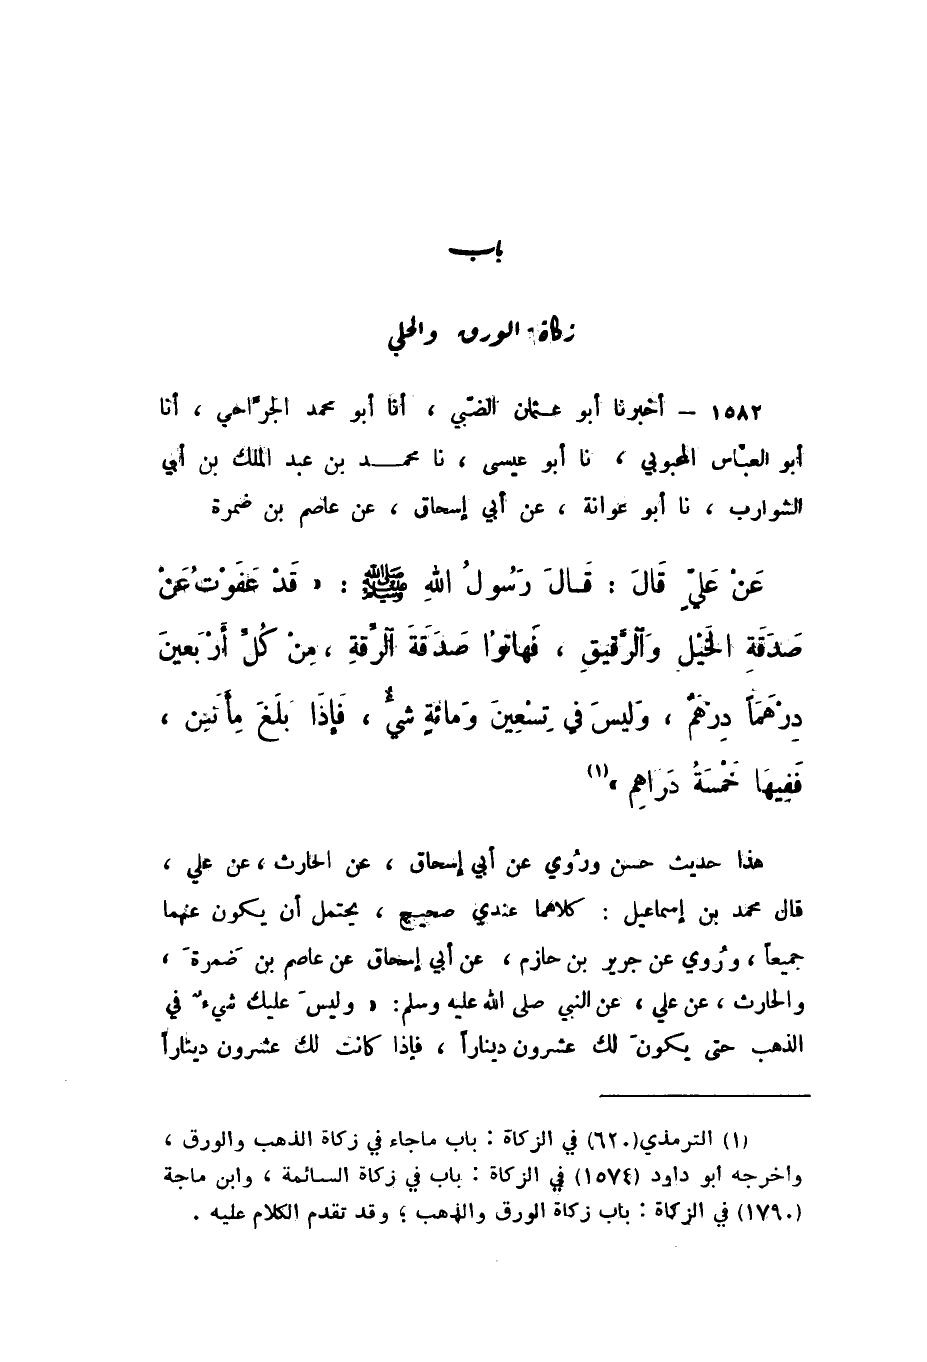 باب
زكاة الورق والحلي
١٥٨٢ – أخبرنا أبو عثمان الضبّي ، أنا أبو محمد الجرّاحي ، أنا
أبو العبّاس المحبوبي ، نا أبو عيسى ، نا محمـــد بن عبد الملك بن أبي
الشوارب ، نا أبو عوانة ، عن أبي إسحاق ، عن عاصم بن ضمرة
عَنْ عَليٍّ قَالَ : قَـالَ رَسُولُ اللهِ ﷺ : « قَدْ عَفَوْتُ عَنْ
صَدَقَةِ الخَيْلِ وَالرَّقيقِ ، فَهاتوا صَدَقَةَ الرِّقةِ ، مِنْ كُلِّ أَرْبَعينَ
دِرْهَمَاً دِرْهَمٌ ، وَلَيسَ في تِسْعِينَ وَمائةٍ شيءٌ ، فَإِذَا بَلَغَ مِأَتَيْن ،
فَفِيهَا خَمْسَةُ دَرَاهِم »(١)
هذا حديث حسن ورُوي عن أبي إسحاق ، عن الحارث ، عن علي ،
قال محمد بن إسماعيل : كلاهما عندي صحيح ، يحتمل أن يكون عنهما
جميعاً ، ورُوي عن جرير بن حازم ، عن أبي إسحاق عن عاصم بن ضَمرة َ ،
والحارث ، عن علي ، عن النبي صلى الله عليه وسلم: « وليسَ عليك شيءٌ في
الذهب حتى يكونَ لك عشرون ديناراً ، فإذا كانت لك عشرون ديناراً
(١) الترمذي(٦٢٠) في الزكاة : باب ماجاء في زكاة الذهب والورق ،
وأخرجه أبو داود (١٥٧٤) في الزكاة : باب في زكاة السائمة ، وابن ماجة
(١٧٩٠) في الزكاة : باب زكاة الورق والذهب ؛ وقد تقدم الكلام عليه .